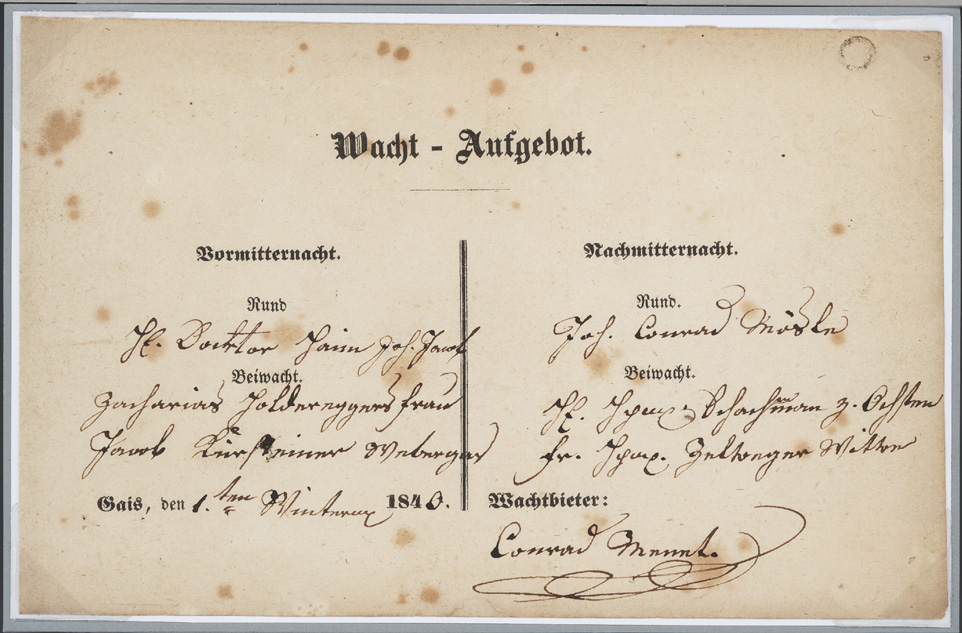 Wacht - Aufgebot.
Vormitternacht.
Rund
Hr. Docktor Heim Joh. Jacob
Beiwacht.
Zacharias Holdereggers frau
Jacob Kürsteiner Webergas
Gais, den 1.ten Winterm 1840.
Nachmitternacht.
Rund.
Joh. Conrad Mösle
Beiwacht.
Hr. Schachman z. Ochsen
fr. Zellweger Wittwe
Wachtbieter:
Conrad Menet.